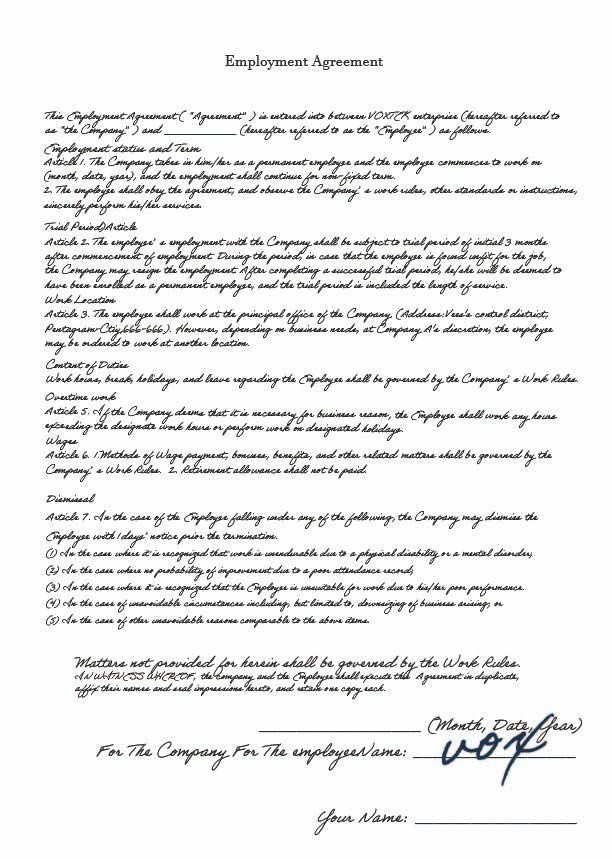 Employment Agreement
This Employment Agreement ( "Agreement" ) is entered into between VOXTEK enterprise (hereafter referred to
as "the Company" ) and ____________ (hereafter referred to as the "Employee" ) as follows.
Employment status and Term
Article 1. The Company takes in him/her as a permanent employee and the employee commences to work on
(month, date, year), and the employment shall continue for non-fixed term.
2. The employee shall obey the agreement, and observe the Company' s work rules, other standards or instructions,
sincerely perform his/her services.
Trial Period)Article
Article 2. The employee' s employment with the Company shall be subject to trial period of initial 3 months
after commencement of employment. During the period, in case that the employee is found unfit for the job,
the Company may resign the employment. After completing a successful trial period, he/she will be deemed to
have been enrolled as a permanent employee, and the trial period is included the length of service.
Work Location
Article 3. The employee shall work at the principal office of the Company (Address:Vee's control district,
Pentagram Ctiy,666-666,). However, depending on business needs, at Company A's discretion, the employee
may be ordered to work at another location.
Content of Duties
Work hours, break, holidays, and leave regarding the Employee shall be governed by the Company' s Work Rules.
Overtime work
Article 5. If the Company deems that it is necessary for business reason, the Employee shall work any hours
exceeding the designate work hours or perform work on designated holidays.
Wages
Article 6. 1 Methods of Wage payment, bonuses, benefits, and other related matters shall be governed by the
Company' s Work Rules. 2. Retirement allowance shall not be paid.
Dismissal
Article 7. In the case of the Employee falling under any of the following, the Company may dismiss the
Employee with 1days' notice prior the termination.
(1) In the case where it is recognized that work is unendurable due to a physical disability or a mental disorder,
(2) In the case where no probability of improvement due to a poor attendance record,
(3) In the case where it is recognized that the Employee is unsuitable for work due to his/her poor performance.
(4) In the case of unavoidable circumstances including, but limited to, downsizing of business arising; or
(5) In the case of other unavoidable reasons comparable to the above items.
Matters not provided for herein shall be governed by the Work Rules.
IN WITNESS WHEREOF, the company and the Employee shall execute this Agreement in duplicate,
affix their names and seal impressions hereto, and retain one copy each.
____________________ (Month, Date, Year)
For The Company For The employeeName: ____________________
vox
Your Name: ____________________